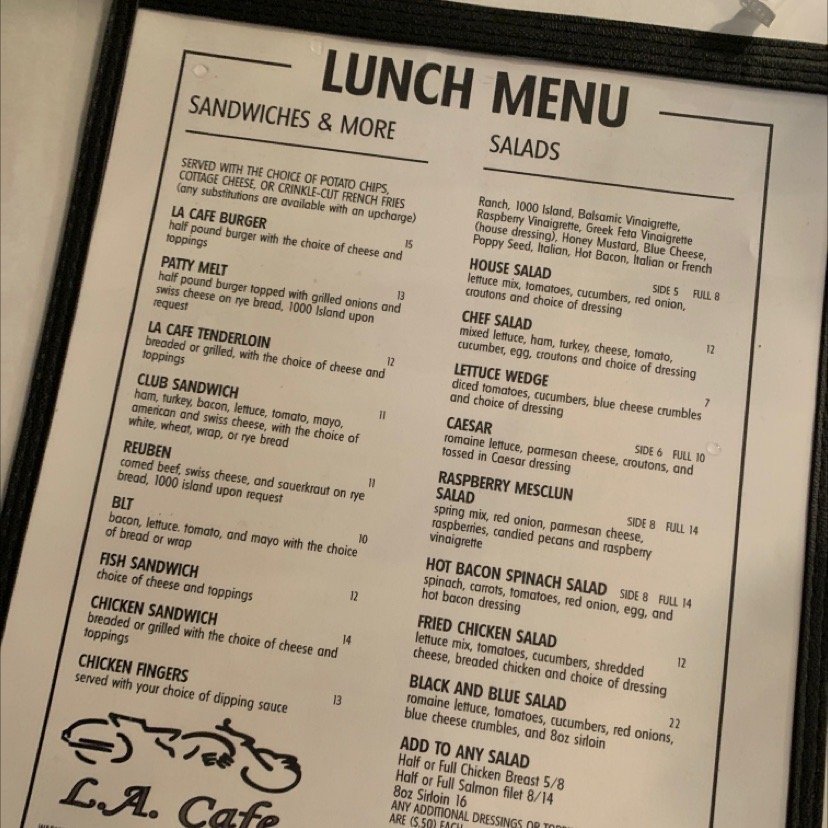 LUNCH MENU
SANDWICHES & MORE
SERVED WITH THE CHOICE OF POTATO CHIPS,
COTTAGE CHEESE, OR CRINKLE-CUT FRENCH FRIES
(any substitutions are available with an upcharge)
LA CAFE BURGER 15
half pound burger with the choice of cheese and
toppings
PATTY MELT 13
half pound burger topped with grilled onions and
swiss cheese on rye bread, 1000 Island upon
request
LA CAFE TENDERLOIN 12
breaded or grilled, with the choice of cheese and
toppings
CLUB SANDWICH 11
ham, turkey, bacon, lettuce, tomato, mayo,
american and swiss cheese, with the choice of
white, wheat, wrap, or rye bread
REUBEN 11
corned beef, swiss cheese, and sauerkraut on rye
bread, 1000 island upon request
BLT 10
bacon, lettuce. tomato, and mayo with the choice
of bread or wrap
FISH SANDWICH 12
choice of cheese and toppings
CHICKEN SANDWICH 14
breaded or grilled with the choice of cheese and
toppings
CHICKEN FINGERS 13
served with your choice of dipping sauce
L.A. Cafe
SALADS
Ranch, 1000 Island, Balsamic Vinaigrette,
Raspberry Vinaigrette, Greek Feta Vinaigrette
(house dressing), Honey Mustard, Blue Cheese,
Poppy Seed, Italian, Hot Bacon, Italian or French
HOUSE SALAD SIDE 5 FULL 8
lettuce mix, tomatoes, cucumbers, red onion,
croutons and choice of dressing
CHEF SALAD 12
mixed lettuce, ham, turkey, cheese, tomato,
cucumber, egg, croutons and choice of dressing
LETTUCE WEDGE 7
diced tomatoes, cucumbers, blue cheese crumbles
and choice of dressing
CAESAR SIDE 6 FULL 10
romaine lettuce, parmesan cheese, croutons, and
tossed in Caesar dressing
RASPBERRY MESCLUN
SALAD SIDE 8 FULL 14
spring mix, red onion, parmesan cheese,
raspberries, candied pecans and raspberry
vinaigrette
HOT BACON SPINACH SALAD SIDE 8 FULL 14
spinach, carrots, tomatoes, red onion, egg, and
hot bacon dressing
FRIED CHICKEN SALAD 12
lettuce mix, tomatoes, cucumbers, shredded
cheese, breaded chicken and choice of dressing
BLACK AND BLUE SALAD 22
romaine lettuce, tomatoes, cucumbers, red onions,
blue cheese crumbles, and 8oz sirloin
ADD TO ANY SALAD
Half or Full Chicken Breast 5/8
Half or Full Salmon filet 8/14
8oz Sirloin 16
ANY ADDITIONAL DRESSINGS OR
ARE (5.50) EACH